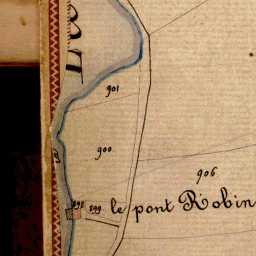 901
900
906
898 899 le pont Robin